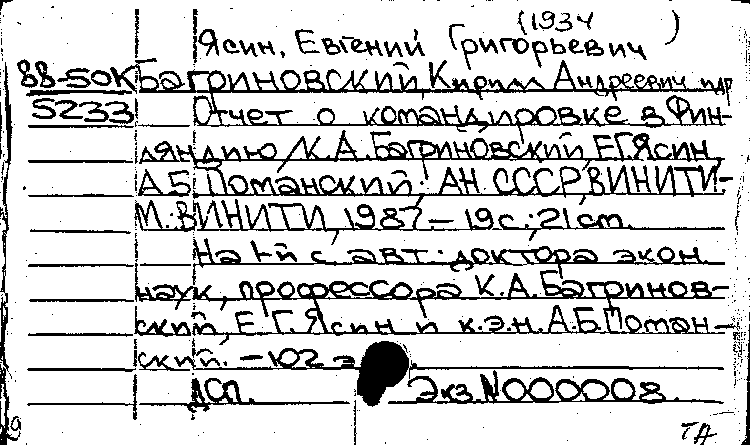 (1934 )
Ясин, Евгений Григорьевич
88-50К Багриновский, Кирилл Андреевич и др
5233 Отчет о командировке в Фин-
ляндию / К.А. Багриновский, Е.Г. Ясин,
А.Б. Поманский; АН СССР, ВИНИТИ.-
М.: ВИНИТИ, 1987 - 19 с.; 21 cm.
На 1-й с. авт.: доктора экон.
наук, профессора К.А. Багринов-
ский, Е.Г. Ясин и к.э.н. А.Б. Поман-
ский. - 102 э .
ДСП. Экз. N000008.
9 ТА